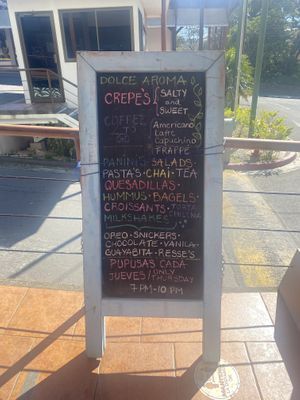 DOLCE AROMA
CREPE'S
SALTY
and
SWEET
COFFEE
TO
GO
Americano
Latte
Capuchino
FRAPPE
PANINI'S SALADS
PASTA'S · CHAI · TEA
QUESADILLAS
HUMMUS · BAGELS
CROISSANTS
TORTA
CHILENA
MILKSHAKES
OREO · SNICKERS
CHOCOLATE · VANILA
GUAYABITA · REESE'S
PUPUSAS CADA
JUEVES / ONLY
THURSDAY
7 PM - 10 PM